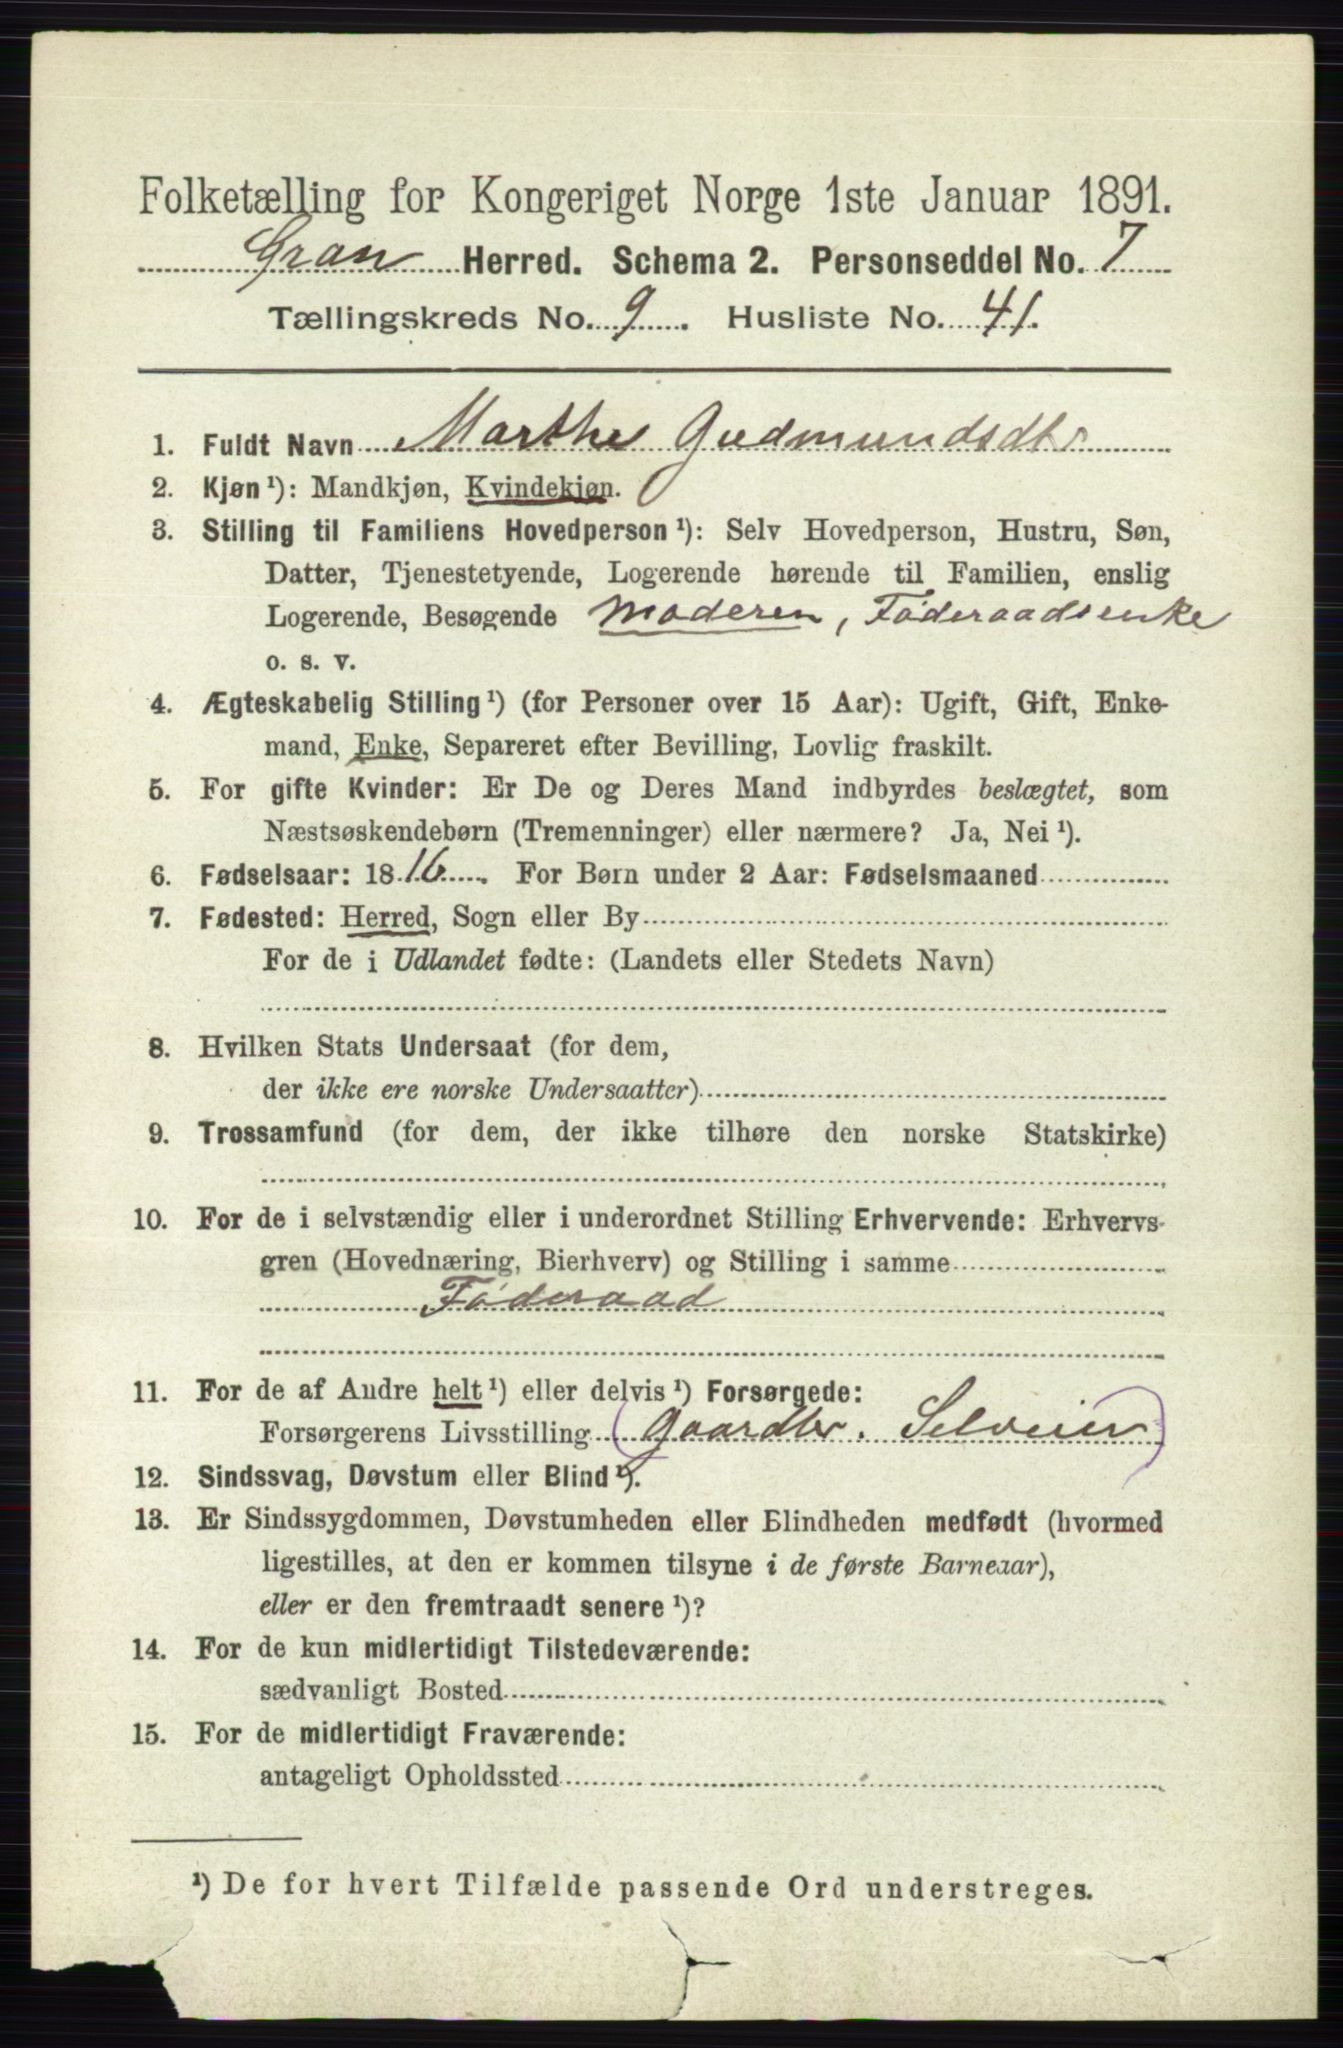 Folketælling for Kongeriget Norge 1ste Januar 1891.
Gran Herred. Schema 2. Personseddel No. 7
Tællingskreds No. 9. Husliste No. 41.
1. Fuldt Navn Marthe Gudmundsdtr
2. Kjøn ¹): Mandkjøn, Kvindekjøn.
3. Stilling til Familiens Hovedperson ¹): Selv Hovedperson, Hustru, Søn,
Datter, Tjenestetyende, Logerende hørende til Familien, enslig
Logerende, Besøgende Moderen, Føderaadsenke
o. s. v.
4. Ægteskabelig Stilling ¹) (for Personer over 15 Aar): Ugift, Gift, Enke-
mand, Enke, Separeret efter Bevilling, Lovlig fraskilt.
5. For gifte Kvinder: Er De og Deres Mand indbyrdes beslægtet, som
Næstsøskendebørn (Tremenninger) eller nærmere? Ja, Nei ¹).
6. Fødselsaar: 1816. For Børn under 2 Aar: Fødselsmaaned
7. Fødested: Herred, Sogn eller By
For de i Udlandet fødte: (Landets eller Stedets Navn)
8. Hvilken Stats Undersaat (for dem,
der ikke ere norske Undersaatter)
9. Trossamfund (for dem, der ikke tilhøre den norske Statskirke)
10. For de i selvstændig eller i underordnet Stilling Erhvervende: Erhvervs-
gren (Hovednæring, Bierhverv) og Stilling i samme
Føderaad
11. For de af Andre helt ¹) eller delvis ¹) Forsørgede:
Forsørgerens Livsstilling (Gaardbr. Selveier)
12. Sindssvag, Døvstum eller Blind ¹).
13. Er Sindssygdommen, Døvstumheden eller Blindheden medfødt (hvormed
ligestilles, at den er kommen tilsyne i de første Barneaar),
eller er den fremtraadt senere ¹)?
14. For de kun midlertidigt Tilstedeværende:
sædvanligt Bosted
15. For de midlertidigt Fraværende:
antageligt Opholdssted
¹) De for hvert Tilfælde passende Ord understreges.